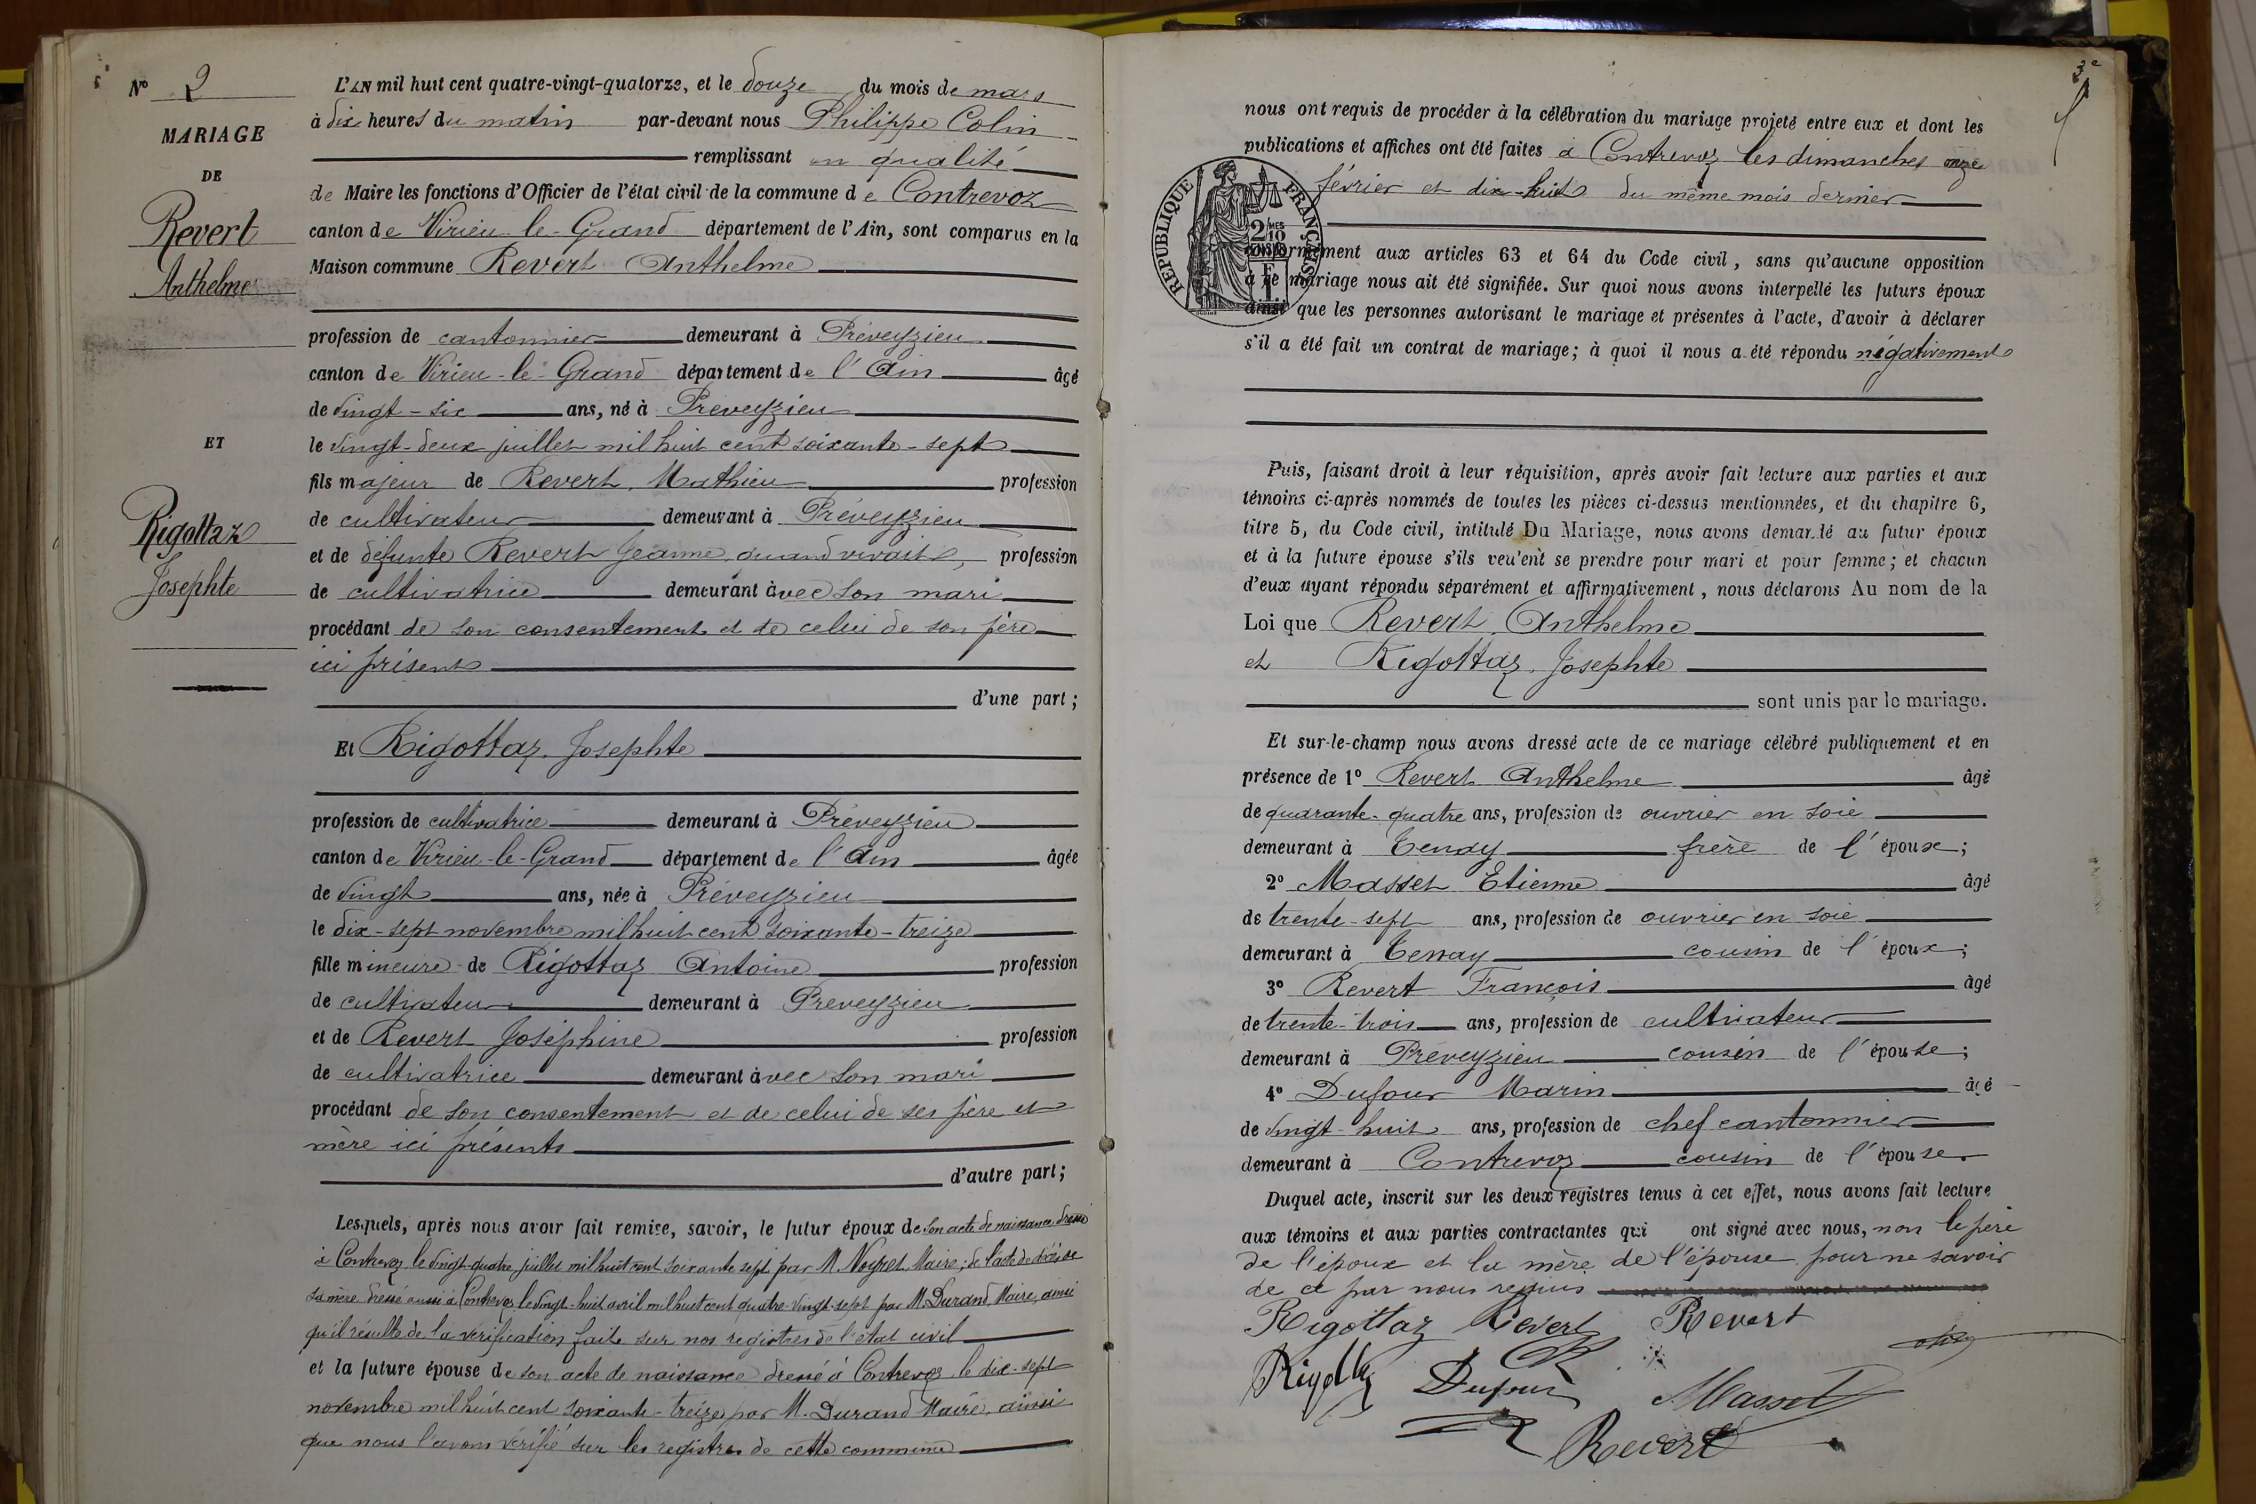 Nº 2
MARIAGE
DE
Revert
Anthelme
ET
Rigottaz
Josephte
L'AN mil huit cent quatre-vingt-quatorze, et le douze du mois de mars
à dix heures du matin par-devant nous Philippe Colin
remplissant en qualité
de Maire les fonctions d'Officier de l'état civil de la commune de Contrevoz
canton de Virieu-le-Grand département de l'Ain, sont comparus en la
Maison commune Revert Anthelme
profession de cantonnier demeurant à Préveyzieu
canton de Virieu-le-Grand département de l'Ain âgé
de vingt-six ans, né à Préveyzieu
le vingt-deux juillet mil huit cent soixante-sept
fils majeur de Revert Mathieu profession
de cultivateur demeurant à Préveyzieu
et de défunte Revert Jeanne, quand vivait, profession
de cultivatrice demeurant avec son mari
procédant de son consentement et de celui de son père
ici présent
d'une part ;
Et Rigottaz Josephte
profession de cultivatrice demeurant à Préveyzieu
canton de Virieu-le-Grand département de l'Ain âgée
de vingt ans, née à Préveyzieu
le dix-sept novembre mil huit cent soixante-treize
fille mineure de Rigottaz Antoine profession
de cultivateur demeurant à Préveyzieu
et de Revert Joséphine profession
de cultivatrice demeurant avec son mari
procédant de son consentement et de celui de ses père et
mère ici présents
d'autre part ;
Lesquels, après nous avoir fait remise, savoir, le futur époux de son acte de naissance dressé
à Contrevoz le vingt-quatre juillet mil huit cent soixante sept par M. Neyret, Maire ; de l'acte de décès de
sa mère dressé aussi à Contrevoz le vingt-huit avril mil huit cent quatre-vingt-sept par M. Durand, Maire, ainsi
qu'il résulte de la vérification faite sur nos registres de l'état civil
et la future épouse de son acte de naissance dressé à Contrevoz le dix-sept
novembre mil huit cent soixante-treize par M. Durand Maire, ainsi
que nous l'avons vérifié sur les registres de cette commune
3e
nous ont requis de procéder à la célébration du mariage projeté entre eux et dont les
publications et affiches ont été faites à Contrevoz les dimanches onze
février et dix-huit du même mois dernier
RÉPUBLIQUE FRANÇAISE
2/10
conformément aux articles 63 et 64 du Code civil, sans qu'aucune opposition
à ce mariage nous ait été signifiée. Sur quoi nous avons interpellé les futurs époux
ainsi que les personnes autorisant le mariage et présentes à l'acte, d'avoir à déclarer
s'il a été fait un contrat de mariage ; à quoi il nous a été répondu négativement
Puis, faisant droit à leur réquisition, après avoir fait lecture aux parties et aux
témoins ci-après nommés de toutes les pièces ci-dessus mentionnées, et du chapitre 6,
titre 5, du Code civil, intitulé Du Mariage, nous avons demandé au futur époux
et à la future épouse s'ils veulent se prendre pour mari et pour femme ; et chacun
d'eux ayant répondu séparément et affirmativement, nous déclarons Au nom de la
Loi que Revert Anthelme
et Rigottaz Josephte
sont unis par le mariage.
Et sur-le-champ nous avons dressé acte de ce mariage célébré publiquement et en
présence de 1º Revert Anthelme âgé
de quarante-quatre ans, profession de ouvrier en soie
demeurant à Tenay frère de l'époux ;
2º Masset Etienne âgé
de trente-sept ans, profession de ouvrier en soie
demeurant à Tenay cousin de l'époux ;
3º Revert François âgé
de trente-trois ans, profession de cultivateur
demeurant à Préveyzieu cousin de l'épouse ;
4º Dufour Marin âgé
de vingt-huit ans, profession de chef cantonnier
demeurant à Contrevoz cousin de l'épouse.
Duquel acte, inscrit sur les deux registres tenus à cet effet, nous avons fait lecture
aux témoins et aux parties contractantes qui ont signé avec nous, non le père
de l'époux et la mère de l'épouse pour ne savoir
de ce par nous requis
Rigottaz Revert Revert
Rigottaz Dufour Masset
Revert